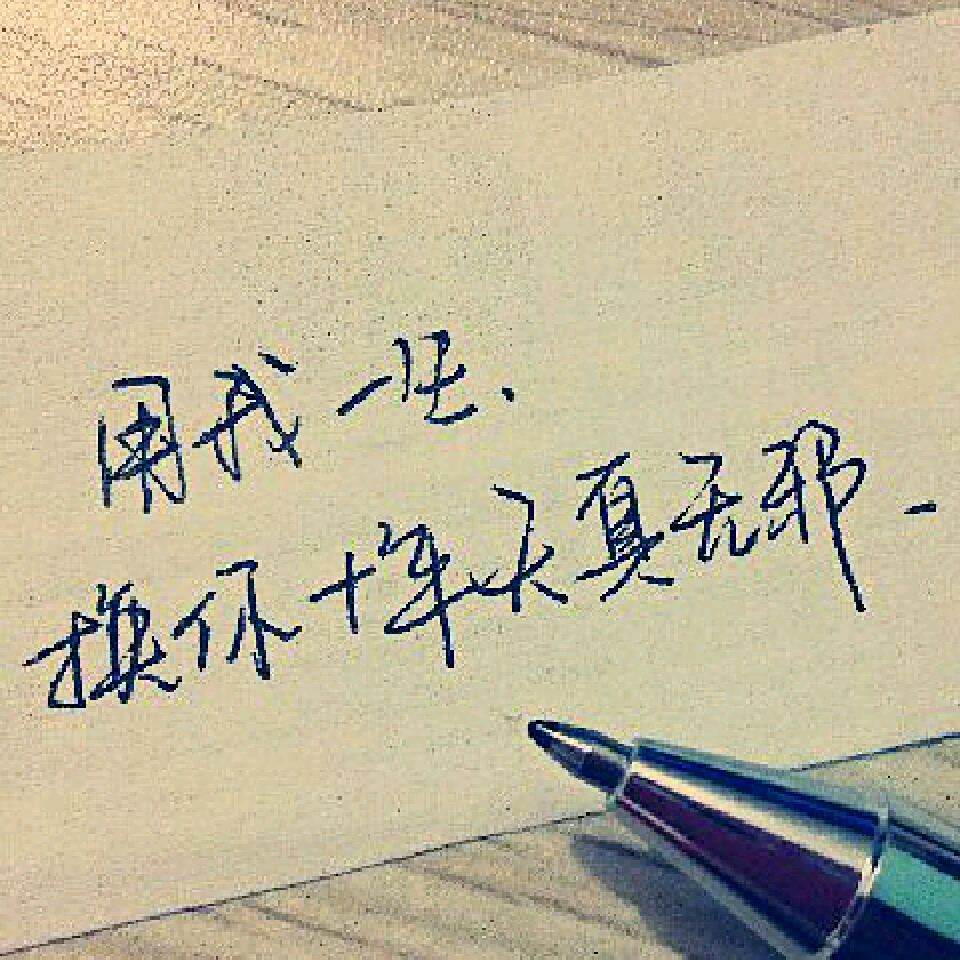 用我一生.
换你十年天真无邪-